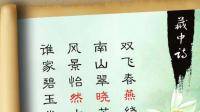 藏中诗
双飞春燕
南山翠晓
风景怡然
谁家碧玉